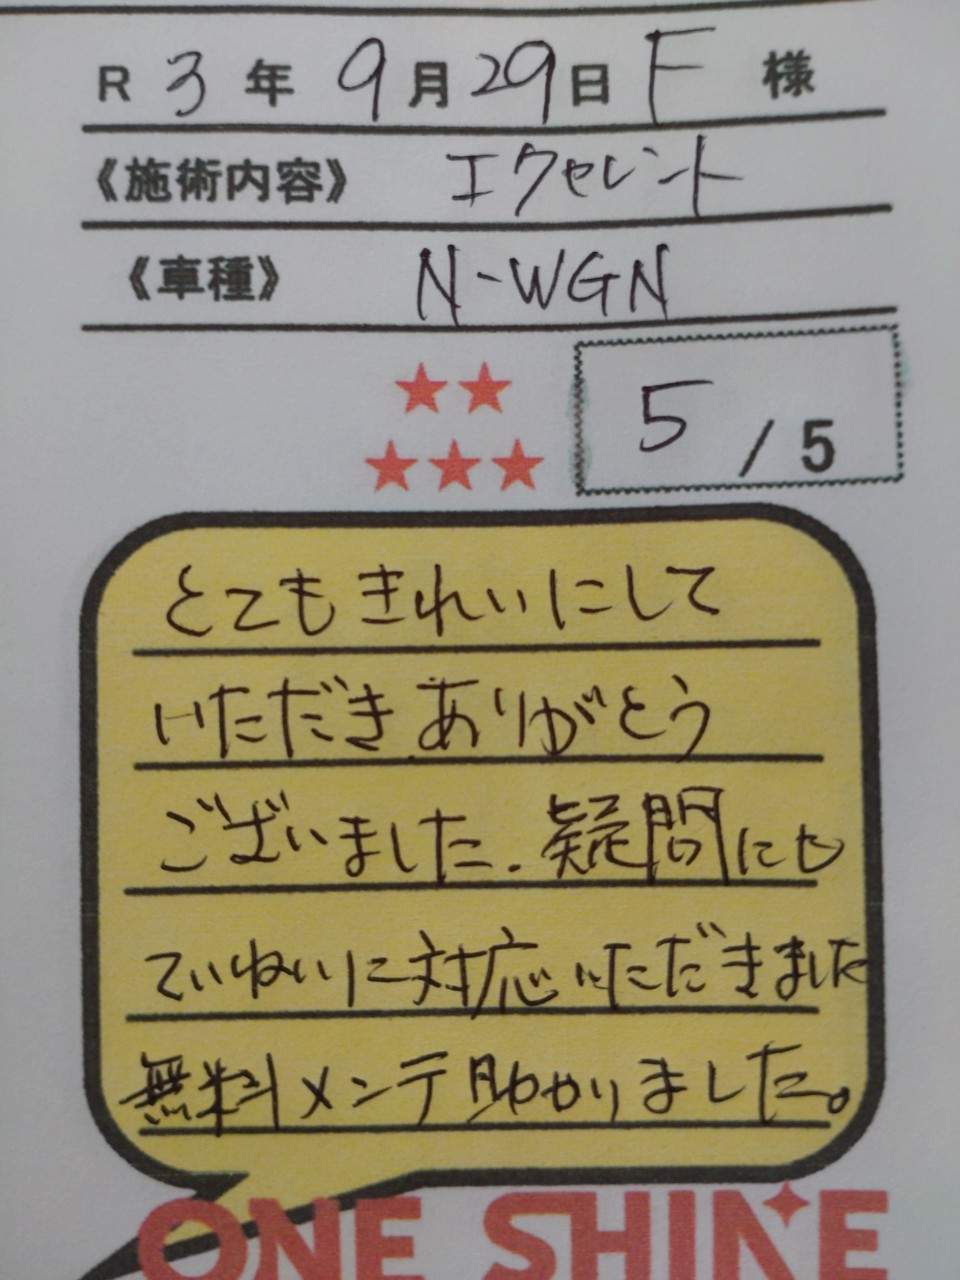 R 3 年 9 月 29 日 F 様
《施術内容》 エクセレント
《車種》 N-WGN
5 / 5
とてもきれいにして
いただきありがとう
ございました. 疑問にも
ていねいに対応いただきました
無料メンテ助かりました。
ONE SHINE